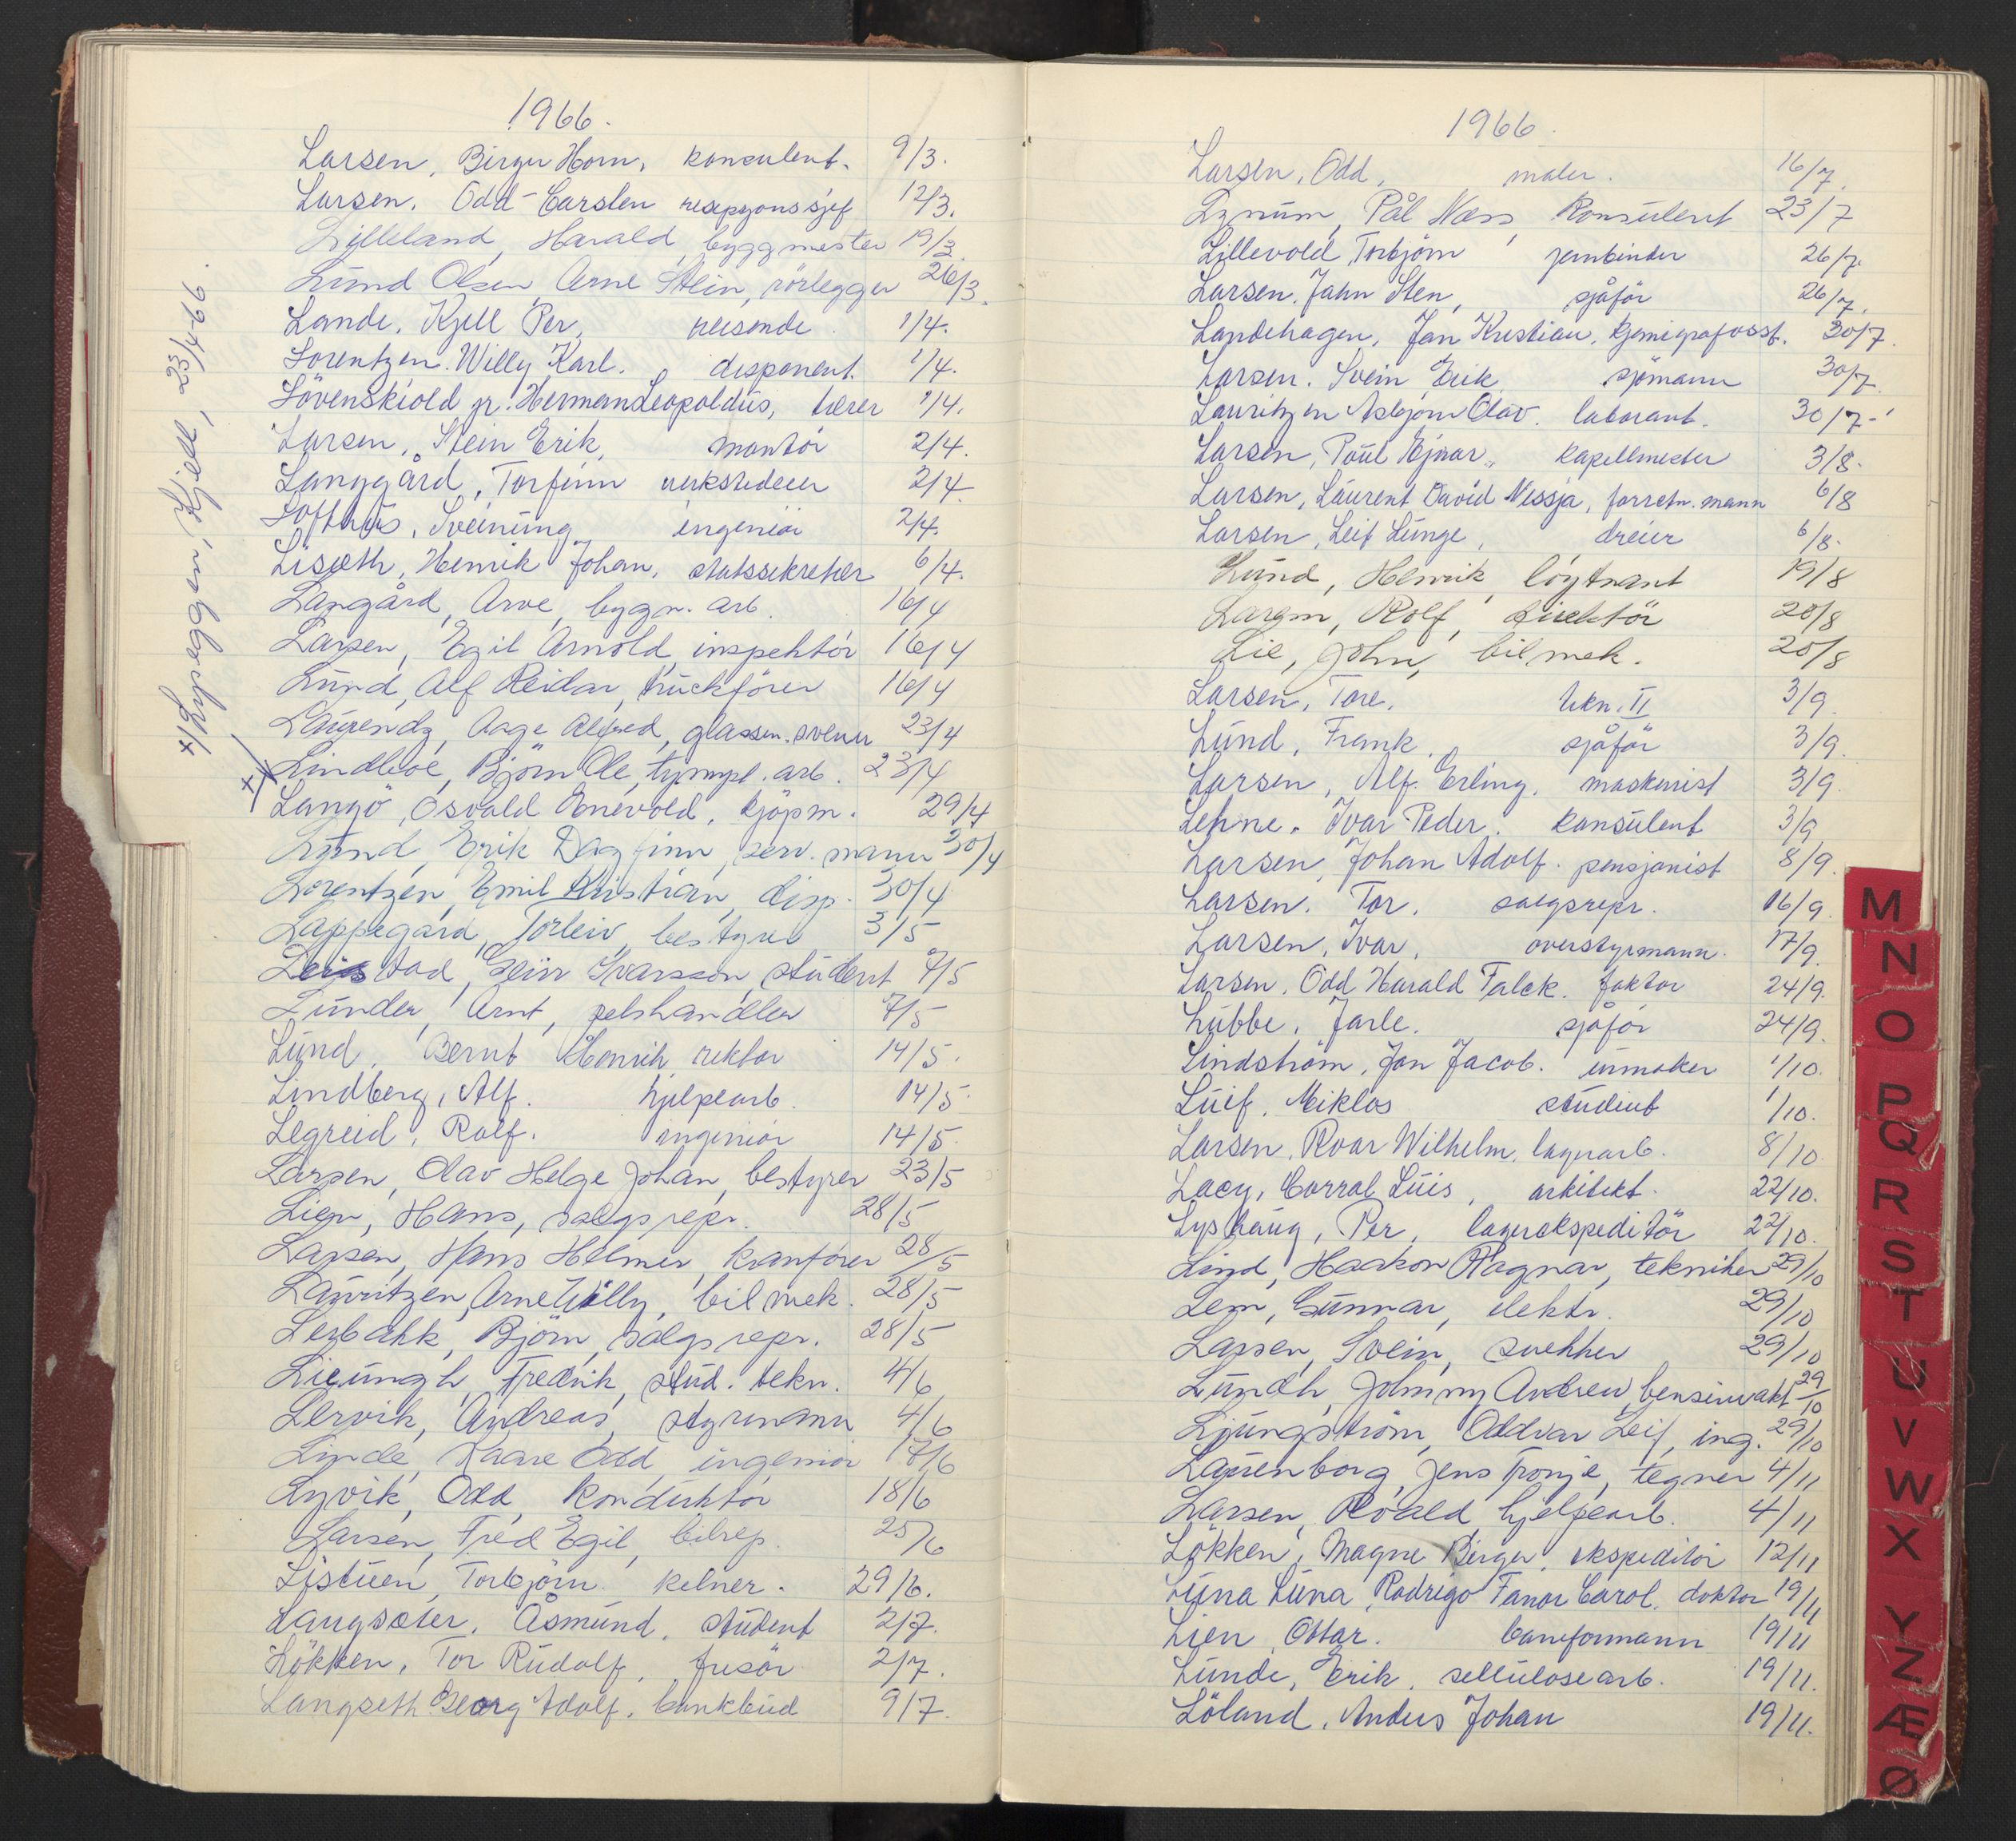 1966.
Larsen, Birger Horn, konsulent. 9/3.
Larsen, Odd-Carsten resepsjonssjef 12/3.
Lilleland, Harald, byggmester 19/3.
Lund Olsen Arne Stein, rörlegger 26/3.
Lande, Kjell Per, reisende 1/4.
Lorentzen. Willy Karl. disponent. 1/4.
Lövenskiold jr. Herman Leopoldus, lærer 1/4.
Larsen, Stein Erik, montör 2/4.
Langgård, Torfinn verksteder 2/4.
Lofthus, Sveinung ingeniör 2/4.
Liseth, Henrik Johan, statssekretær 6/4.
Langård, Arve, bygn. arb. 16/4
Larsen, Egil Arnold, inspektör 16/4
Lund, Alf Reidar, truckförer 16/4
Laurendz, Aage Alfred, glassm. svenn 23/4
Lindboe, Björn Ole, tympl. arb. 23/4
+ Langö, Osvald Enevold, kjöpm. 29/4
Lund, Erik Dagfinn, serv. mann 30/4
Lorentzen, Emil Kristian, disp. 30/4
Lappegård, Torleiv, bestyrer 3/5
Leistad, Geirr Ivarsson, student 7/5
Lunder, Arnt, pelshandler 7/5
Lund, Bernt Henrik, rektor 14/5.
Lindberg, Alf. hjelpearb. 14/5.
Legreid, Rolf. ingeniör 14/5.
Larsen, Olav Helge Johan, bestyrer 23/5
Lien, Hans, salgsrepr. 28/5
Larsen, Hans Helmer, kranförer 28/5
Lauritzen, Arne Willy, bilmek. 28/5
Lerbakk, Björn, salgsrepr. 28/5
Lieungh, Fredrik, stud. tekn. 4/6
Lervik, Andreas, styrmann 4/6
Linde, Kaare Odd, ingeniör 18/6
Lyvik, Odd, konduktör 18/6
Larsen, Fred Egil, bilrep. 25/6
Listuen, Torbjörn. kelner. 29/6.
Langsæter, Åsmund, student 2/7.
Lökken, Tor Rudolf, frisör 2/7.
Langseth Georg Adolf, bankbud 9/7.
+ Lyshoggon, Kjell, 23/4-69.
1966.
Larsen, Odd, maler. 16/7.
Lynum, Pål Næss, konsulent 23/7
Lillevold, Torbjörn jernbinder 26/7.
Larsen, Jahn Sten, sjåför 26/7.
Landehagen, Jan Kristian, kjemigrafass. 30/7.
Larsen. Svein Erik sjömann 30/7.
Lauritzen Asbjörn Olav. laborant. 30/7-
Larsen, Poul Ejnar, kapellmester 3/8.
Larsen, Laurent David Nessja, forretn. mann 6/8
Larsen, Leif Lunge, dreier 6/8.
Lund, Henrik, löytnant 19/8
Larsen, Rolf, direktör 20/8
Lie, John, bilmek. 20/8
Larsen, Tore, tekn. II 3/9.
Lund, Frank, sjåför 3/9.
Larsen, Alf. Erling, maskinist 3/9.
Lehne, Ivar Peder. konsulent 3/9
Larsen, Johan Adolf. pensjonist 8/9.
Larsen. Tor, salgsrepr. 16/9.
Larsen, Ivar, overstyrmann. 17/9.
Larsen, Odd Harald Falck. faktor 24/9.
Lübbe, Jarle. sjåför 24/9.
Lindström, Jan Jacob. urmaker 1/10.
Luif, Miklos student 1/10.
Larsen, Roar Wilhelm, lagerarb. 8/10.
Lacy, Corral Luis, arkitekt. 22/10.
Lyshaug, Per, lagerekspeditör 22/10.
Lind, Haakon Ragnar, tekniker 29/10
Lem, Gunnar, elektr. 29/10
Larsen, Svein, snekker 29/10
Lundh, Johnny Andrew, bensinvakt 29/10
Ljungström, Oddvar Leif, ing. 29/10
Laurenborg, Jens Tronje, tegner 4/11
Larsen, Roald hjelpearb. 4/11
Lökken, Magne Birger, ekspeditör 12/11
Luna Luna, Rodrigo Fanor Carol, doktor 19/11
Lien, Ottar. baneformann 19/11
Lunde, Erik, cellulosearb. 19/11.
Löland, Anders Johan 19/11.
M
N
O
P
Q
R
S
T
U
V
W
X
Y
Z
Æ
Ø